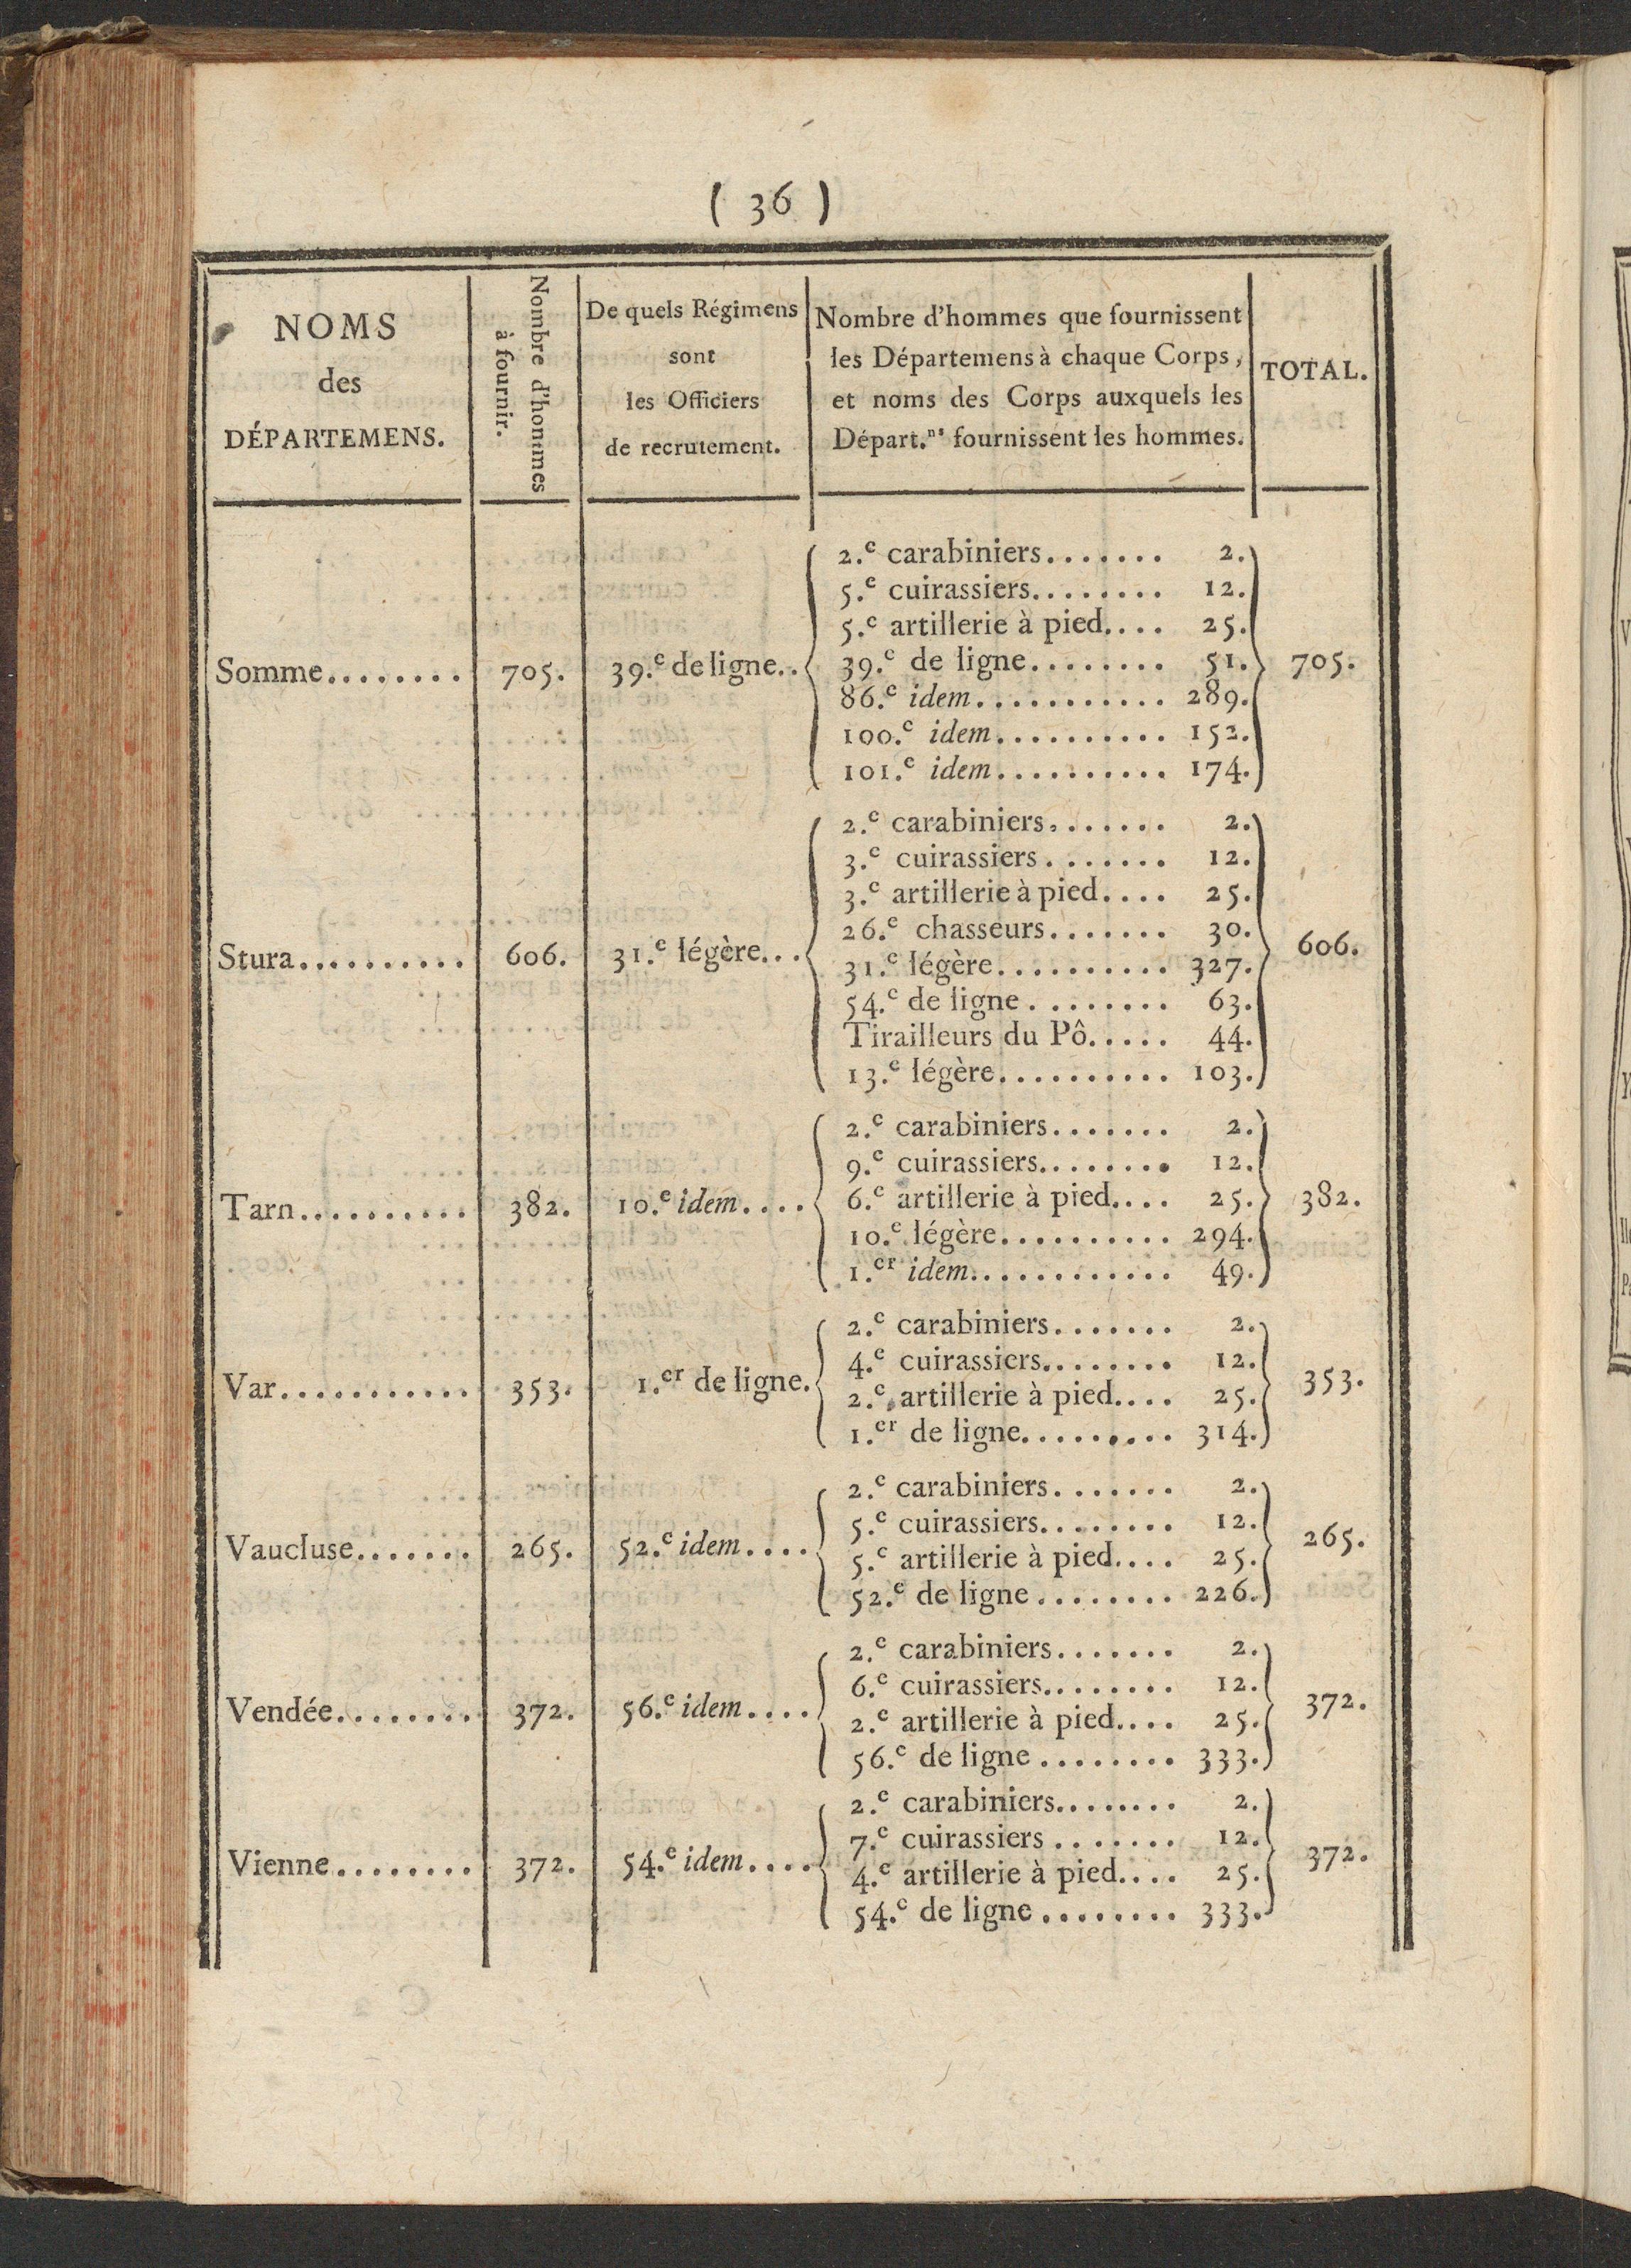 ( 36 )
NOMS
des
DÉPARTEMENS.
Nombre d'hommes
à fournir.
De quels Régimens
sont
les Officiers
de recrutement.
Nombre d'hommes que fournissent
les Départemens à chaque Corps,
et noms des Corps auxquels les
Départ.ns fournissent les hommes.
TOTAL.
Somme........ 705. 39.e de ligne..
2.e carabiniers....... 2.
5.e cuirassiers........ 12.
5.e artillerie à pied.... 25.
39.e de ligne........ 51.
86.e idem........... 289.
100.e idem.......... 152.
101.e idem.......... 174.
705.
Stura.......... 606. 31.e légère...
2.e carabiniers....... 2.
3.e cuirassiers....... 12.
3.e artillerie à pied.... 25.
26.e chasseurs....... 30.
31.e légère.......... 327.
54.e de ligne........ 63.
Tirailleurs du Pô..... 44.
13.e légère.......... 103.
606.
Tarn.......... 382. 10.e idem....
2.e carabiniers....... 2.
9.e cuirassiers........ 12.
6.e artillerie à pied.... 25.
10.e légère.......... 294.
1.er idem............ 49.
382.
Var........... 353. 1.er de ligne.
2.e carabiniers....... 2.
4.e cuirassiers........ 12.
2.e artillerie à pied.... 25.
1.er de ligne......... 314.
353.
Vaucluse....... 265. 52.e idem....
2.e carabiniers....... 2.
5.e cuirassiers........ 12.
5.e artillerie à pied.... 25.
52.e de ligne........ 226.
265.
Vendée........ 372. 56.e idem....
2.e carabiniers....... 2.
6.e cuirassiers........ 12.
2.e artillerie à pied.... 25.
56.e de ligne........ 333.
372.
Vienne........ 372. 54.e idem....
2.e carabiniers........ 2.
7.e cuirassiers....... 12.
4.e artillerie à pied.... 25.
54.e de ligne........ 333.
372.